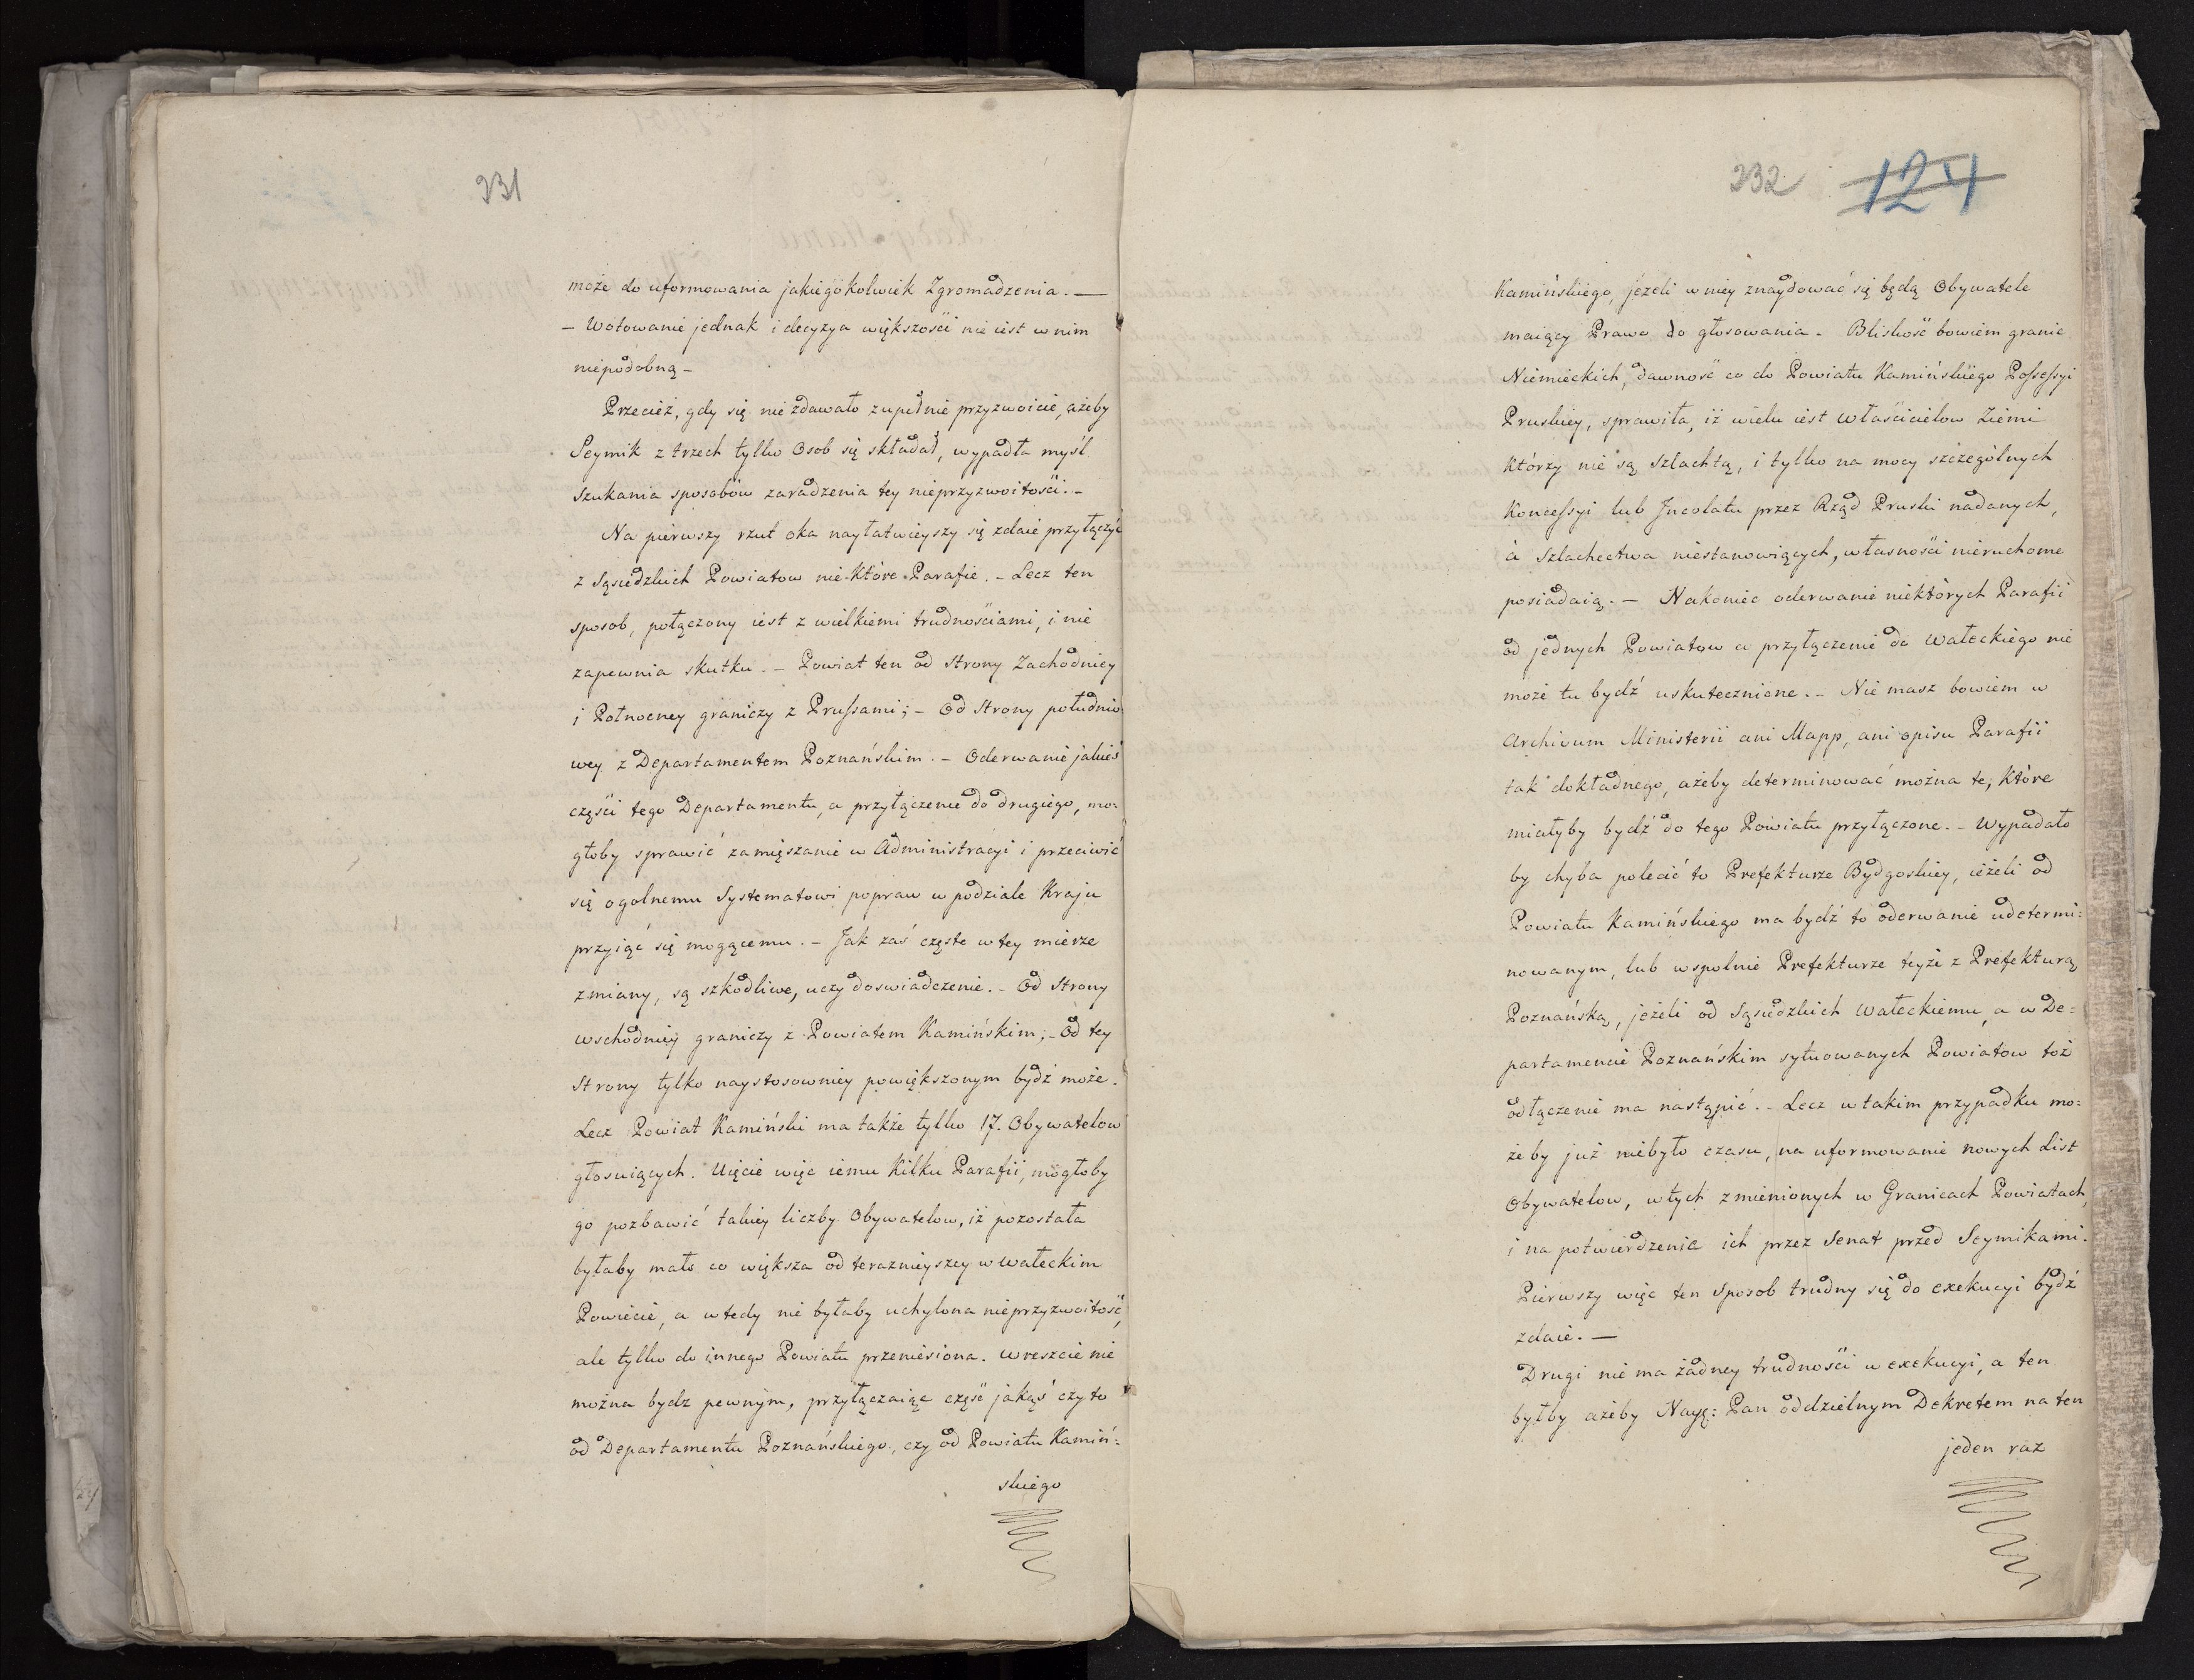 231
może do uformowania jakiegokolwiek Zgromadzenia. —
– Wotowanie jednak i decyzya większości nie iest w nim
niepodobną –
Przecież, gdy się nie zdawało zupełnie przyzwoicie, ażeby
Seymik z trzech tylko Osob się składał, wypadła myśl
szukania sposobów zaradzenia tey nieprzyzwoitości. –
Na pierwszy rzut oka nayłatwieyszy się zdaie przyłączyć
z Sąsiedzkich Powiatow nie-które Parafie. – Lecz ten
sposob, połączony iest z wielkiemi trudnościami, i nie
zapewnia skutku. – Powiat ten od Strony Zachodniey
i Połnocney graniczy z Prussami; – Od Strony południo
wey z Departamentem Poznańskim. – Oderwanie jakieś
części tego Departamentu, a przyłączenie do drugiego, mo=
głoby sprawić zamięszanie w Administracyi i przeciwić
się ogolnemu Systematowi popraw w podziale Kraju
przyiąć się mogącemu. – Jak zaś częste w tey mierze
zmiany, są szkodliwe, uczy doswiadczenie. – Od Strony
wschodniey graniczy z Powiatem Kamińskim; – Od tey
Strony tylko naystosowniey powiększonym bydź może.
Lecz Powiat Kamiński ma także tylko 17. Obywatelow
głosuiących. Ujęcie więc iemu Kilku Parafii, mogłoby
go pozbawić takiey liczby Obywatelow, iż pozostała
byłaby mało co większa od terazniejszey w Wałeckim
Powiecie, a wtedy nie byłaby uchylona nieprzyzwoitość,
ale tylko do innego Powiatu przeniesiona. Wreszcie nie
można bydz pewnym, przyłączaiąc część jakąś czy to
od Departamentu Poznańskiego, czy od Powiatu Kamiń=
skiego
232 124
Kamińskiego, jeżeli w niey znaydować się będą Obywatele
maiący Prawo do głosowania. Bliskość bowiem granic
Niemieckich, dawność co do Powiatu Kamińskiego Possessyi
Pruskiey, sprawiła, iż wielu iest Właścicielow Ziemi
którzy nie są Szlachtą, i tylko na mocy szczególnych
Koncessyi lub Jncolatu przez Rząd Pruski nadanych,
a Szlachectwa niestanowiących, własności nieruchome
posiadaią. — Nakoniec oderwanie niektórych Parafii
od jednych Powiatow a przyłączenie do Wałeckiego nie
może tu bydź uskutecznione. – Nie masz bowiem w
Archivum Ministerii ani Mapp, ani opisu Parafii
tak dokładnego, ażeby determinować można te, które
miałyby bydź do tego Powiatu przyłączone. – Wypadało
by chyba polecić to Prefekturze Bydgoskiey, ieżeli od
Powiatu Kamińskiego ma bydź to oderwanie udetermi=
nowanym, lub wspolnie Prefekturze teyże z Prefekturą
Poznańską, jeżeli od Sąsiedzkich Wałeckiemu, a w De=
partamencie Poznańskim sytuowanych Powiatow toż
odłączenie ma nastąpić. – Lecz w takim przypadku mo=
że by już niebyło czasu, na uformowanie nowych List
Obywatelow, w tych zmienionych w Granicach Powiatach,
i na potwierdzenie ich przez Senat przed Seymikami.
Pierwszy więc ten Sposob trudny się do exekucyi bydź
zdaie. —
Drugi nie ma żadney trudności w exekucyi, a ten
byłby ażeby Nayg: Pan oddzielnym Dekretem na ten
jeden raz